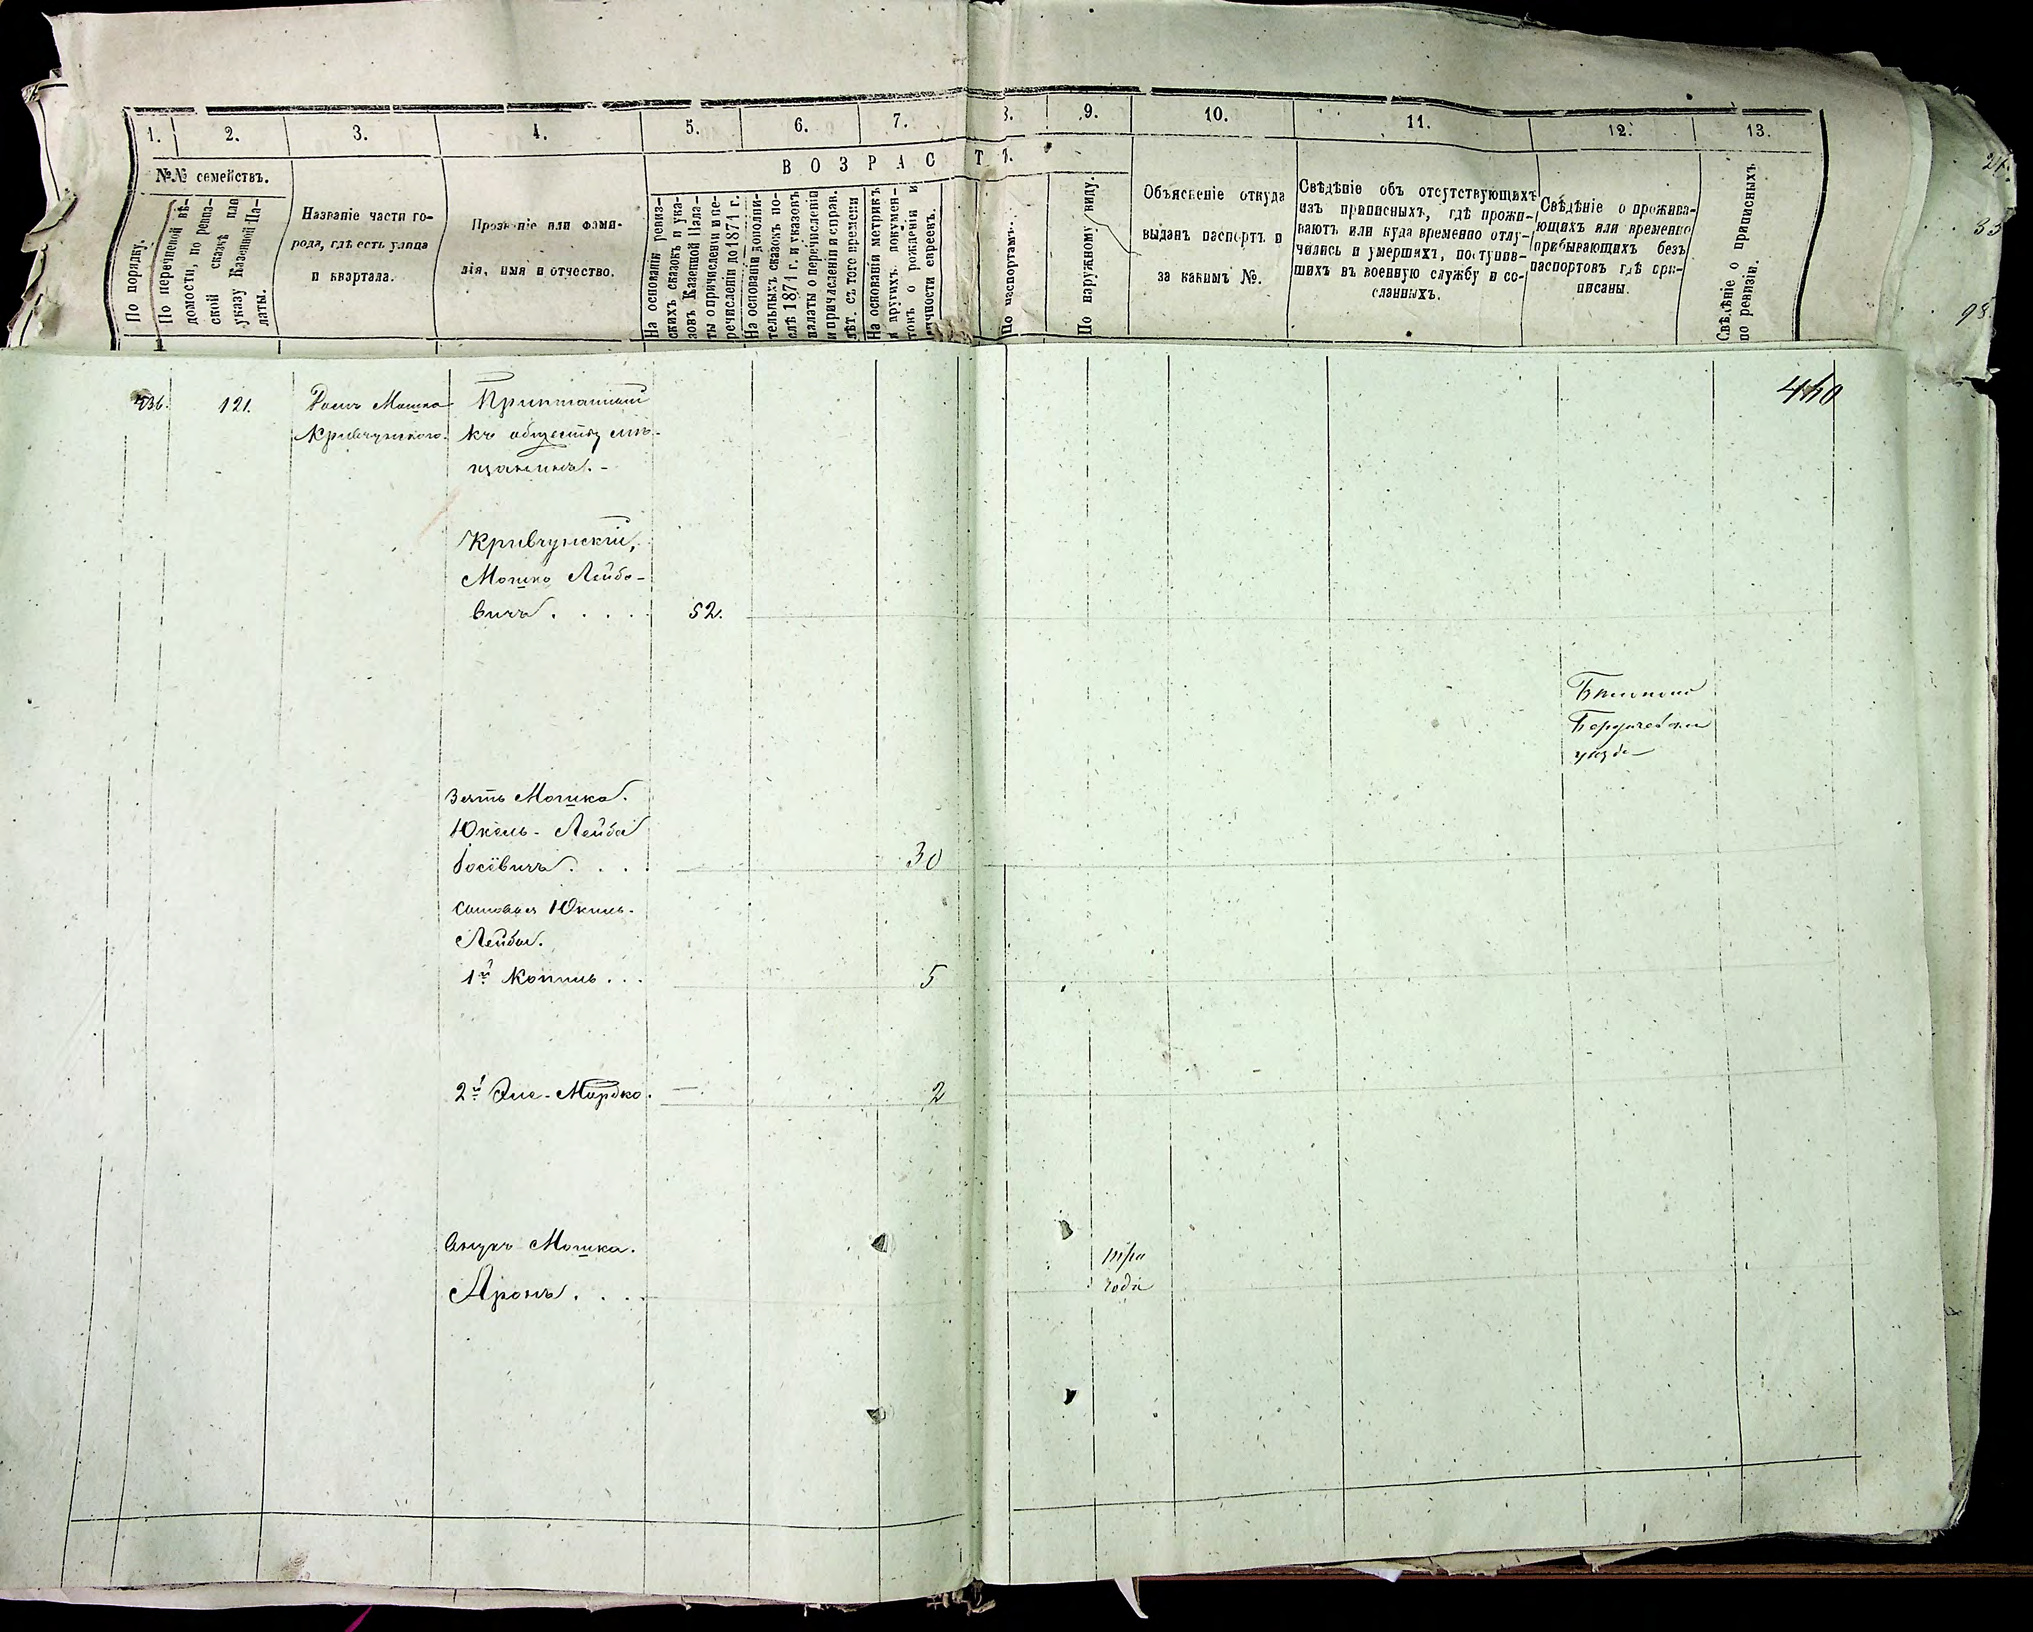 1. 2. 3. 4. 5. 6. 7. 8. 9. 10. 11. 12. 13.
ВОЗРАСТЪ.
№№ семействъ.
По порядку.
По перечневой вѣ-
домости, по ревиз-
ской сказкѣ или
указу Казенной Па-
латы.
Названіе части го-
рода, гдѣ есть улица
и квартала.
Прозваніе или фами-
лія, имя и отчество.
На основаніи ревиз-
скихъ сказокъ и ука-
зовъ Казенной Пала-
ты о причисленіи и пе-
речисленіи до 1871 г.
На основаніи дополни-
тельныхъ сказокъ по-
слѣ 1871 г. и указовъ
палаты о перечисленіи
и причисленіи и справ.
лѣт. съ того времени
На основаніи метрикъ
и другихъ докумен-
товъ о рожденіи и
личности евреевъ.
По паспортамъ.
По наружному виду.
Объясненіе откуда
выданъ паспортъ и
за какимъ №.
Свѣдѣніе объ отсутствующихъ
изъ приписныхъ, гдѣ прожи-
ваютъ или куда временно отлу-
чились и умершихъ, поступив-
шихъ въ военную службу и со-
сланныхъ.
Свѣдѣніе о прожива-
ющихъ или временно
прибывающихъ безъ
паспортовъ гдѣ при-
писаны.
Свѣдѣніе о приписныхъ
по ревизіи.
440
121.
Домъ Мошка
Кривчунского.
къ обществу мѣ-
щанинъ.-
Кривчунскій,
Мошко Лейбо-
вичъ . . . . . 52.
Бердичевскаго
уѣзда
Зять Мошка.
Юкель- Лейба
Іосевичъ . . . . 30
Сыновья Юкель-
Лейбы.
1й Копель . . . 5
2й Эле-Мордко. — 2
Внукъ Мошка.
Аронъ . . . . три
года